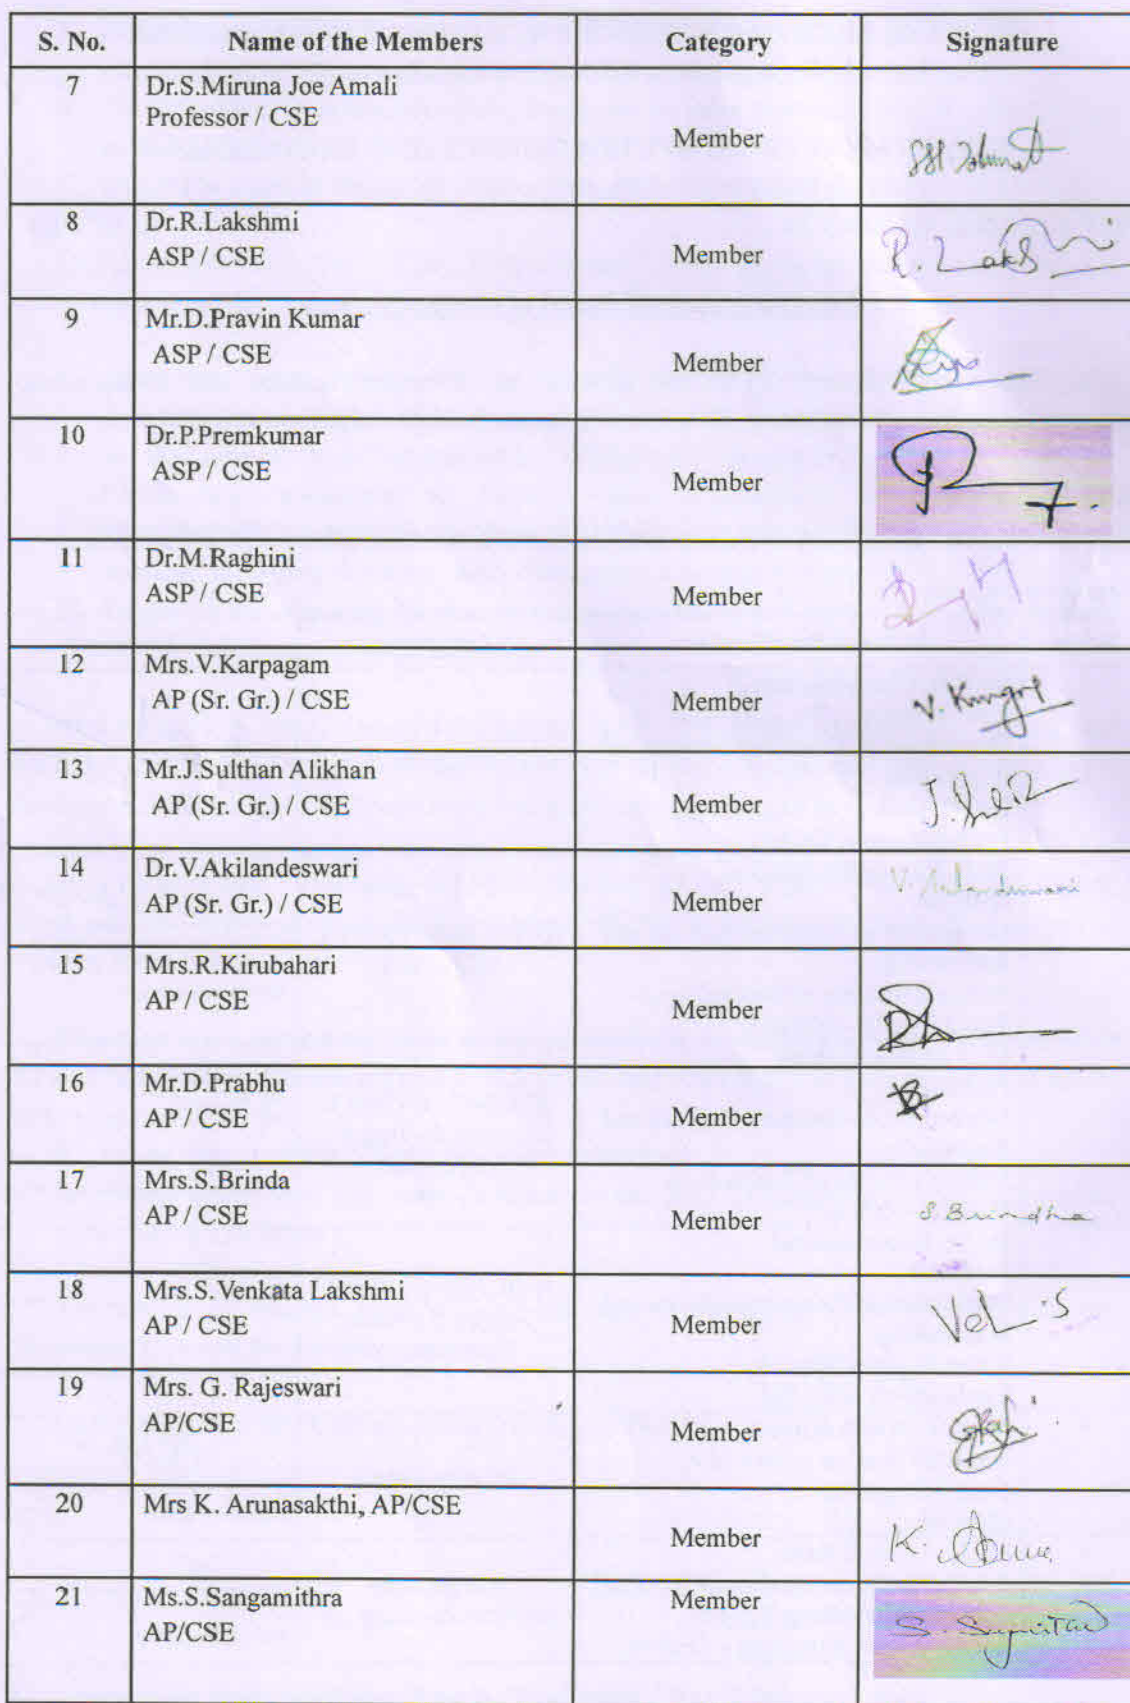 S. No. Name of the Members Category Signature
7 Dr.S.Miruna Joe Amali
Professor / CSE
Member
8 Dr.R.Lakshmi
ASP / CSE
Member R. Lakshmi
9 Mr.D.Pravin Kumar
ASP / CSE
Member
10 Dr.P.Premkumar
ASP / CSE
Member
11 Dr.M.Raghini
ASP / CSE
Member
12 Mrs.V.Karpagam
AP (Sr. Gr.) / CSE
Member
13 Mr.J.Sulthan Alikhan
AP (Sr. Gr.) / CSE
Member
14 Dr.V.Akilandeswari
AP (Sr. Gr.) / CSE
Member
15 Mrs.R.Kirubahari
AP / CSE
Member
16 Mr.D.Prabhu
AP / CSE
Member
17 Mrs.S.Brinda
AP / CSE
Member S. Brindha
18 Mrs.S.Venkata Lakshmi
AP / CSE
Member
19 Mrs. G. Rajeswari
AP/CSE
Member
20 Mrs K. Arunasakthi, AP/CSE
Member
21 Ms.S.Sangamithra Member
AP/CSE